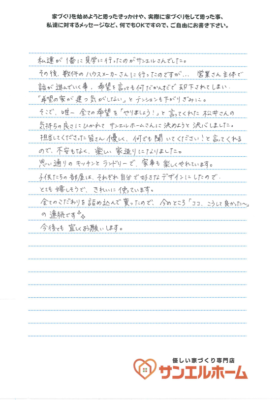 家づくりを始めようと思ったきっかけや、実際に家づくりをして思った事、
私達に対するメッセージなど、何でもOKですので、ご自由にお書き下さい。
私達が1番に見学に行ったのがサンエルさんでした。
その後、数件のハウスメーカーさんに行ったのですが… 営業さん主体で
話が進んでいく事、希望を言っても何だかんだで却下されてしまい
"希望の家が建つ気がしない"とテンションも下がりぎみに。
そこで、唯一 全ての希望を "やりましょう！" と言ってくれた
気持ちの良さにひかれて サンエルホームさんに決めようと決心しました。
担当してくださった皆さん優しく、何でも聞いてください！と言てくれる
ので、不安もなく、楽しい家造りになりました。
思い通りのキッチンとランドリーで、家事も楽しくやれています。
子供たちの部屋は、それぞれ自分で好きなデザインにしたので
とても嬉しそうで、きれいに使っています。
全てのこだわりを詰め込んで貰ったので、今のところ「ココ、こうしとけば良かった〜。」
の連続です
今後も宜しくお願いします。
優しい家づくり専門店
サンエルホーム